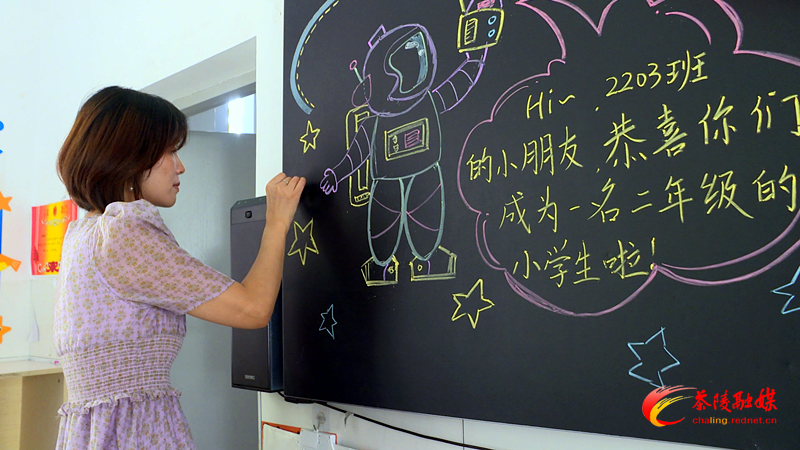 Hi~ 2203班
的小朋友,恭喜你们
成为一名二年级的
小学生啦!
茶陵融媒
chaling.rednet.cn